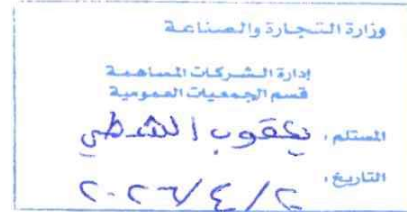 وزارة التجارة والصناعة
إدارة الشركات المساهمة
قسم الجمعيات العمومية
المستلم، يعقوب الشطي
التاريخ،